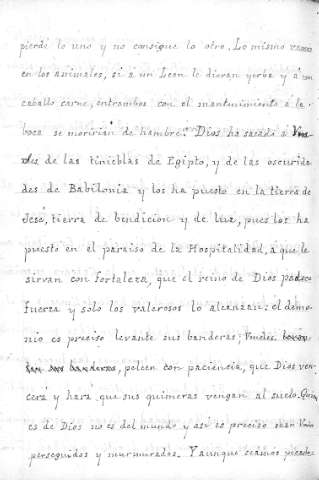 pierde lo uno y no consigue lo otro. Lo mismo vemos
en los animales, si a un Leon le dieran yerba y á un
caballo carne, entrambos con el mantenimiento á la
boca se moririan de hambre. Dios ha sacado á Vue
des de las tinieblas de Egipto, y de las oscurida
des de Babilonia y los ha puesto en la tierra de
Jesé, tierra de bendicion y de luz, pues los ha
puesto en el paraiso de la Hospitalidad, a que le
sirvan con fortaleza, que el reino de Dios padece
fuerza y solo los valerosos lo alcanzan: el demo-
nio es preciso levante sus banderas; Vuedes
peleen con paciencia, que Dios ven-
cerá y hará que sus quimeras vengan al suelo. Quien
es de Dios no es del mundo y asi es preciso sean
perseguidos y murmurados. Y aunque seamos